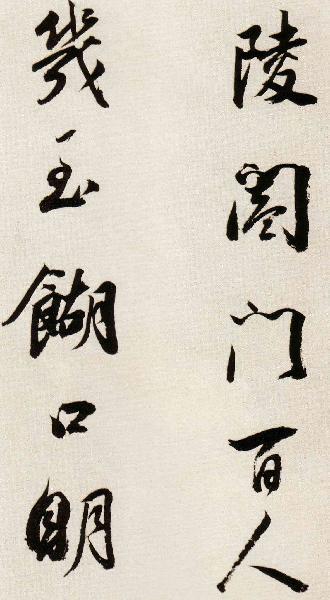 陵阖门百人
几至餬口明